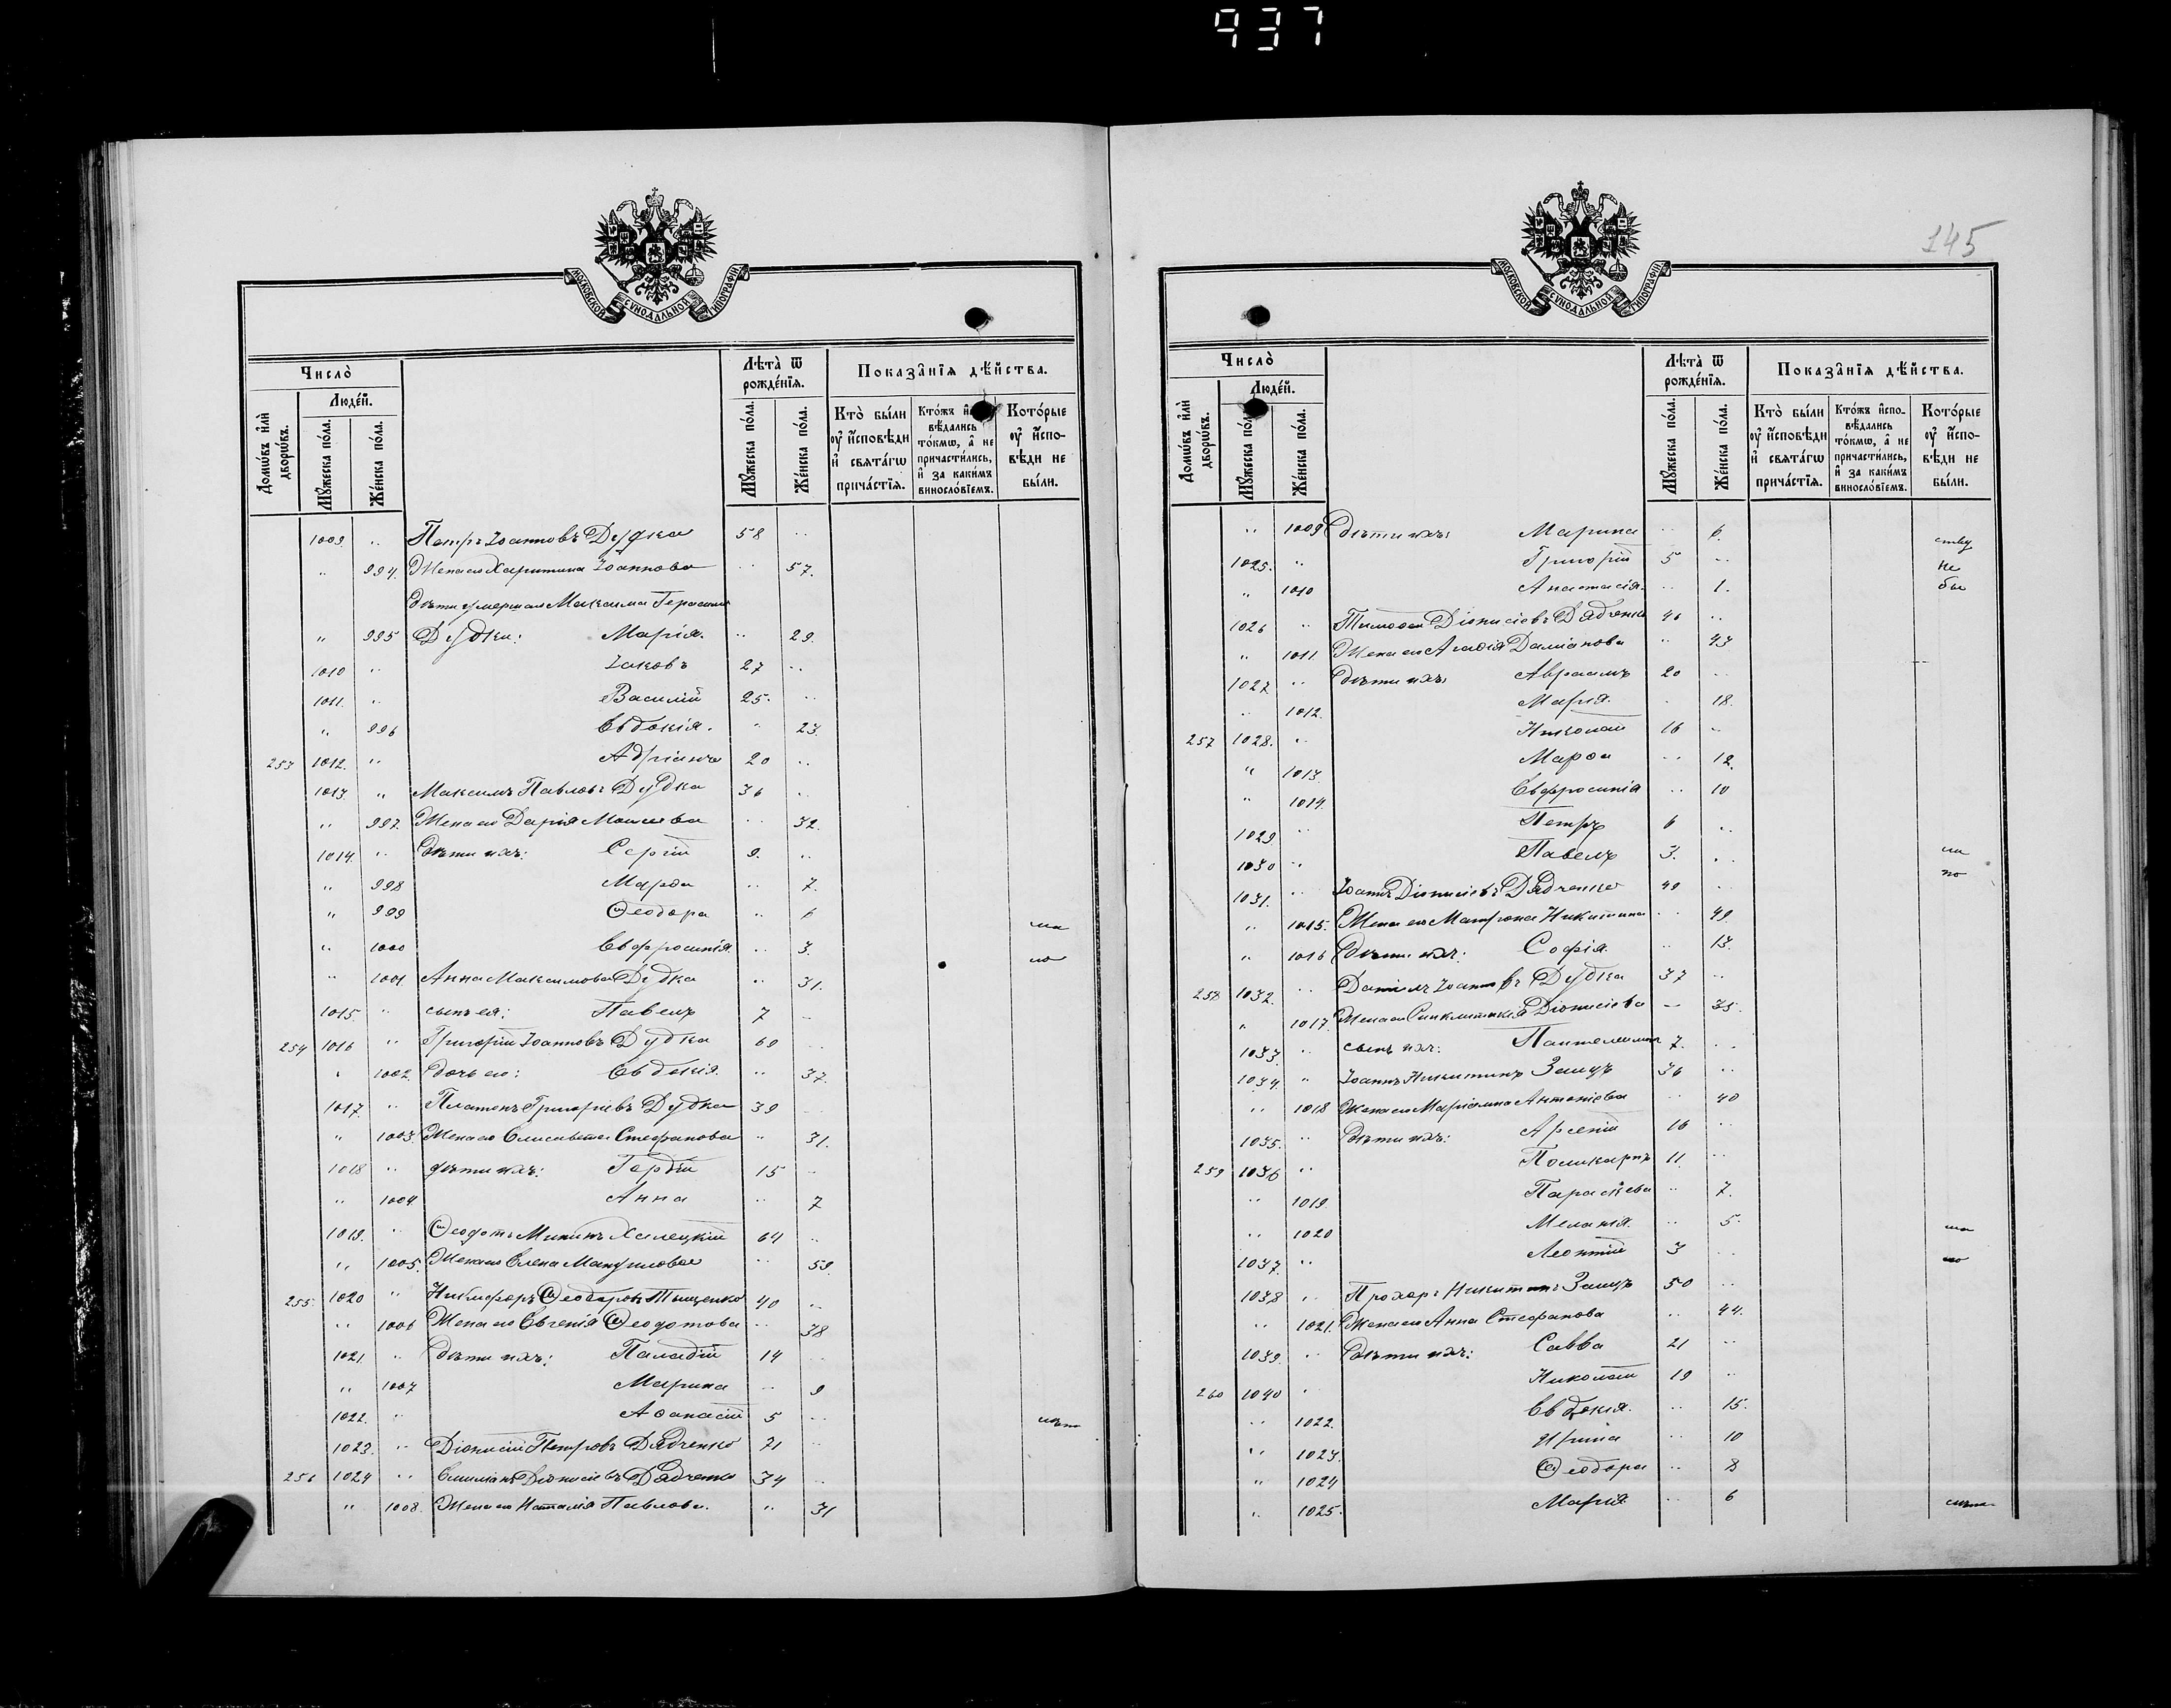 937
МОСКОВСКОЙ СѴНОДАЛЬНОЙ ТИПОГРАФІИ
Число̀
Людей.
Лѣта̀ ѿ рожде́нїѧ.
Показа̑нїѧ дѣ́йства.
Домѡ́въ и҆лѝ дворѡ́въ.
Мꙋ́жеска по́ла.
Же́нска по́ла.
Мꙋ́жеска по́ла.
Же́нска по́ла.
Кто̀ бы́ли ᲂу҆ и҆сповѣди и҆ свѧта́гѡ прича́стїѧ.
Которые ᲂу҆ и҆спо-вѣди не бы́ли.
1009. " Петръ Іоанновъ Дудка 58 "
" 994. Жена его Харитина Іоаннова " 57.
Дѣти умершаго Максима
" 995 Дудки: Марія. " 29
1010 " Іаковъ 27 "
1011. " Василій 25. "
" 996 Евдокія. " 23.
253 1012. " Адріанъ 20 "
1013. " Максимъ Павловъ Дудка 36 "
" 997. Жена его Дарія Моисеева " 32.
1014. " Дѣти ихъ: Сергій 9. "
" 998 Марѳа " 7.
" 999 Ѳеодора " 6
" 1000 Евфросинія. " 3.
" 1001 Анна Максимова Дудка " 31.
1015. " сынъ ея: Павелъ 7 "
254 1016 " Григорій Іоанновъ Дудка 60 "
" 1002. Дочь его: Евдокія. " 37.
1017. " Платонъ Григоріевъ Дудка 39 "
" 1003. Жена его Елисавета Стефанова " 31.
1018 " дѣти ихъ: Гордій 15 "
" 1004. Анна " 7
1019. " Ѳеодотъ Халецкій 64 "
" 1005. Жена его Елена " 59.
255. 1020 " Никифоръ Ѳеодоровъ Тыщенко 40 "
" 1006 Жена его Евгенія Ѳеодотова " 38
1021. " Дѣти ихъ: Паладій 14 "
" 1007 Марина " 9
1022. " Аѳанасій 5 "
1023. " Діонисій Петровъ Дядченко 71 "
256 1024 " Емиліанъ Діонисіевъ Дядченко 34 "
" 1008. Жена его Наталія Павлова. " 31
145
МОСКОВСКОЙ СѴНОДАЛЬНОЙ ТИПОГРАФІИ
Число̀
Людей.
Лѣта̀ ѿ рожде́нїѧ.
Показа̑нїѧ дѣ́йства.
Домѡ́въ и҆лѝ дворѡ́въ.
Мꙋ́жеска по́ла.
Же́нска по́ла.
Мꙋ́жеска по́ла.
Же́нска по́ла.
Кто̀ бы́ли ᲂу҆ и҆сповѣди и҆ свѧта́гѡ прича́стїѧ.
Кто́жъ и҆спо-вѣдались то́кмѡ, а҆ не причасти́лись, и҆ за каки́мъ виносло́вїемъ.
Которые ᲂу҆ и҆спо-вѣди не бы́ли.
" 1009 Дѣти ихъ: Марина " 6.
1025. " Григорій 5 " не
" 1010 Анастасія. " 1.
1026 " Тимоѳей Діонисіевъ Дядченко 46 "
" 1011. Жена его Агафія Даміанова " 43
1027 " Дѣти ихъ: Авраамъ 20 "
" 1012. Марія. " 18.
257 1028. " Николай 16 "
" 1013. Марѳа " 12.
" 1014. Евфросинія " 10
1029 " Петръ 6 "
1030 " Павелъ 3. "
1031. " Іоаннъ Діонисіевъ Дядченко 49 "
" 1015. Жена его Матрона Никитина " 49.
" 1016 Дѣти ихъ: Софія. " 13.
258 1032. " Даніилъ Іоанновъ Дудка 37 "
" 1017. Жена его Синклитикія Діонисіева " 35.
1033. " сынъ ихъ: Пантелеимонъ 7. "
1034. " Іоаннъ Никитинъ Заяцъ 36 "
" 1018 Жена его Маріамна Антоніева " 40
1035. " Дѣти ихъ: Арсеній 16 "
259 1036 " Поликарпъ 11. "
" 1019. Параскева " 7.
" 1020 Меланія. " 5.
1037. " Леонтій 3 "
1038 " Прохоръ Никитинъ Заяцъ 50 "
" 1021. Жена его Анна Стефанова " 44.
1039. " Дѣти ихъ: Савва 21 "
260 1040 " Николай 19 "
" 1022. Евдокія. " 15.
" 1023. Ирина " 10
" 1024 Ѳеодора " 8
" 1025. Марія " 6